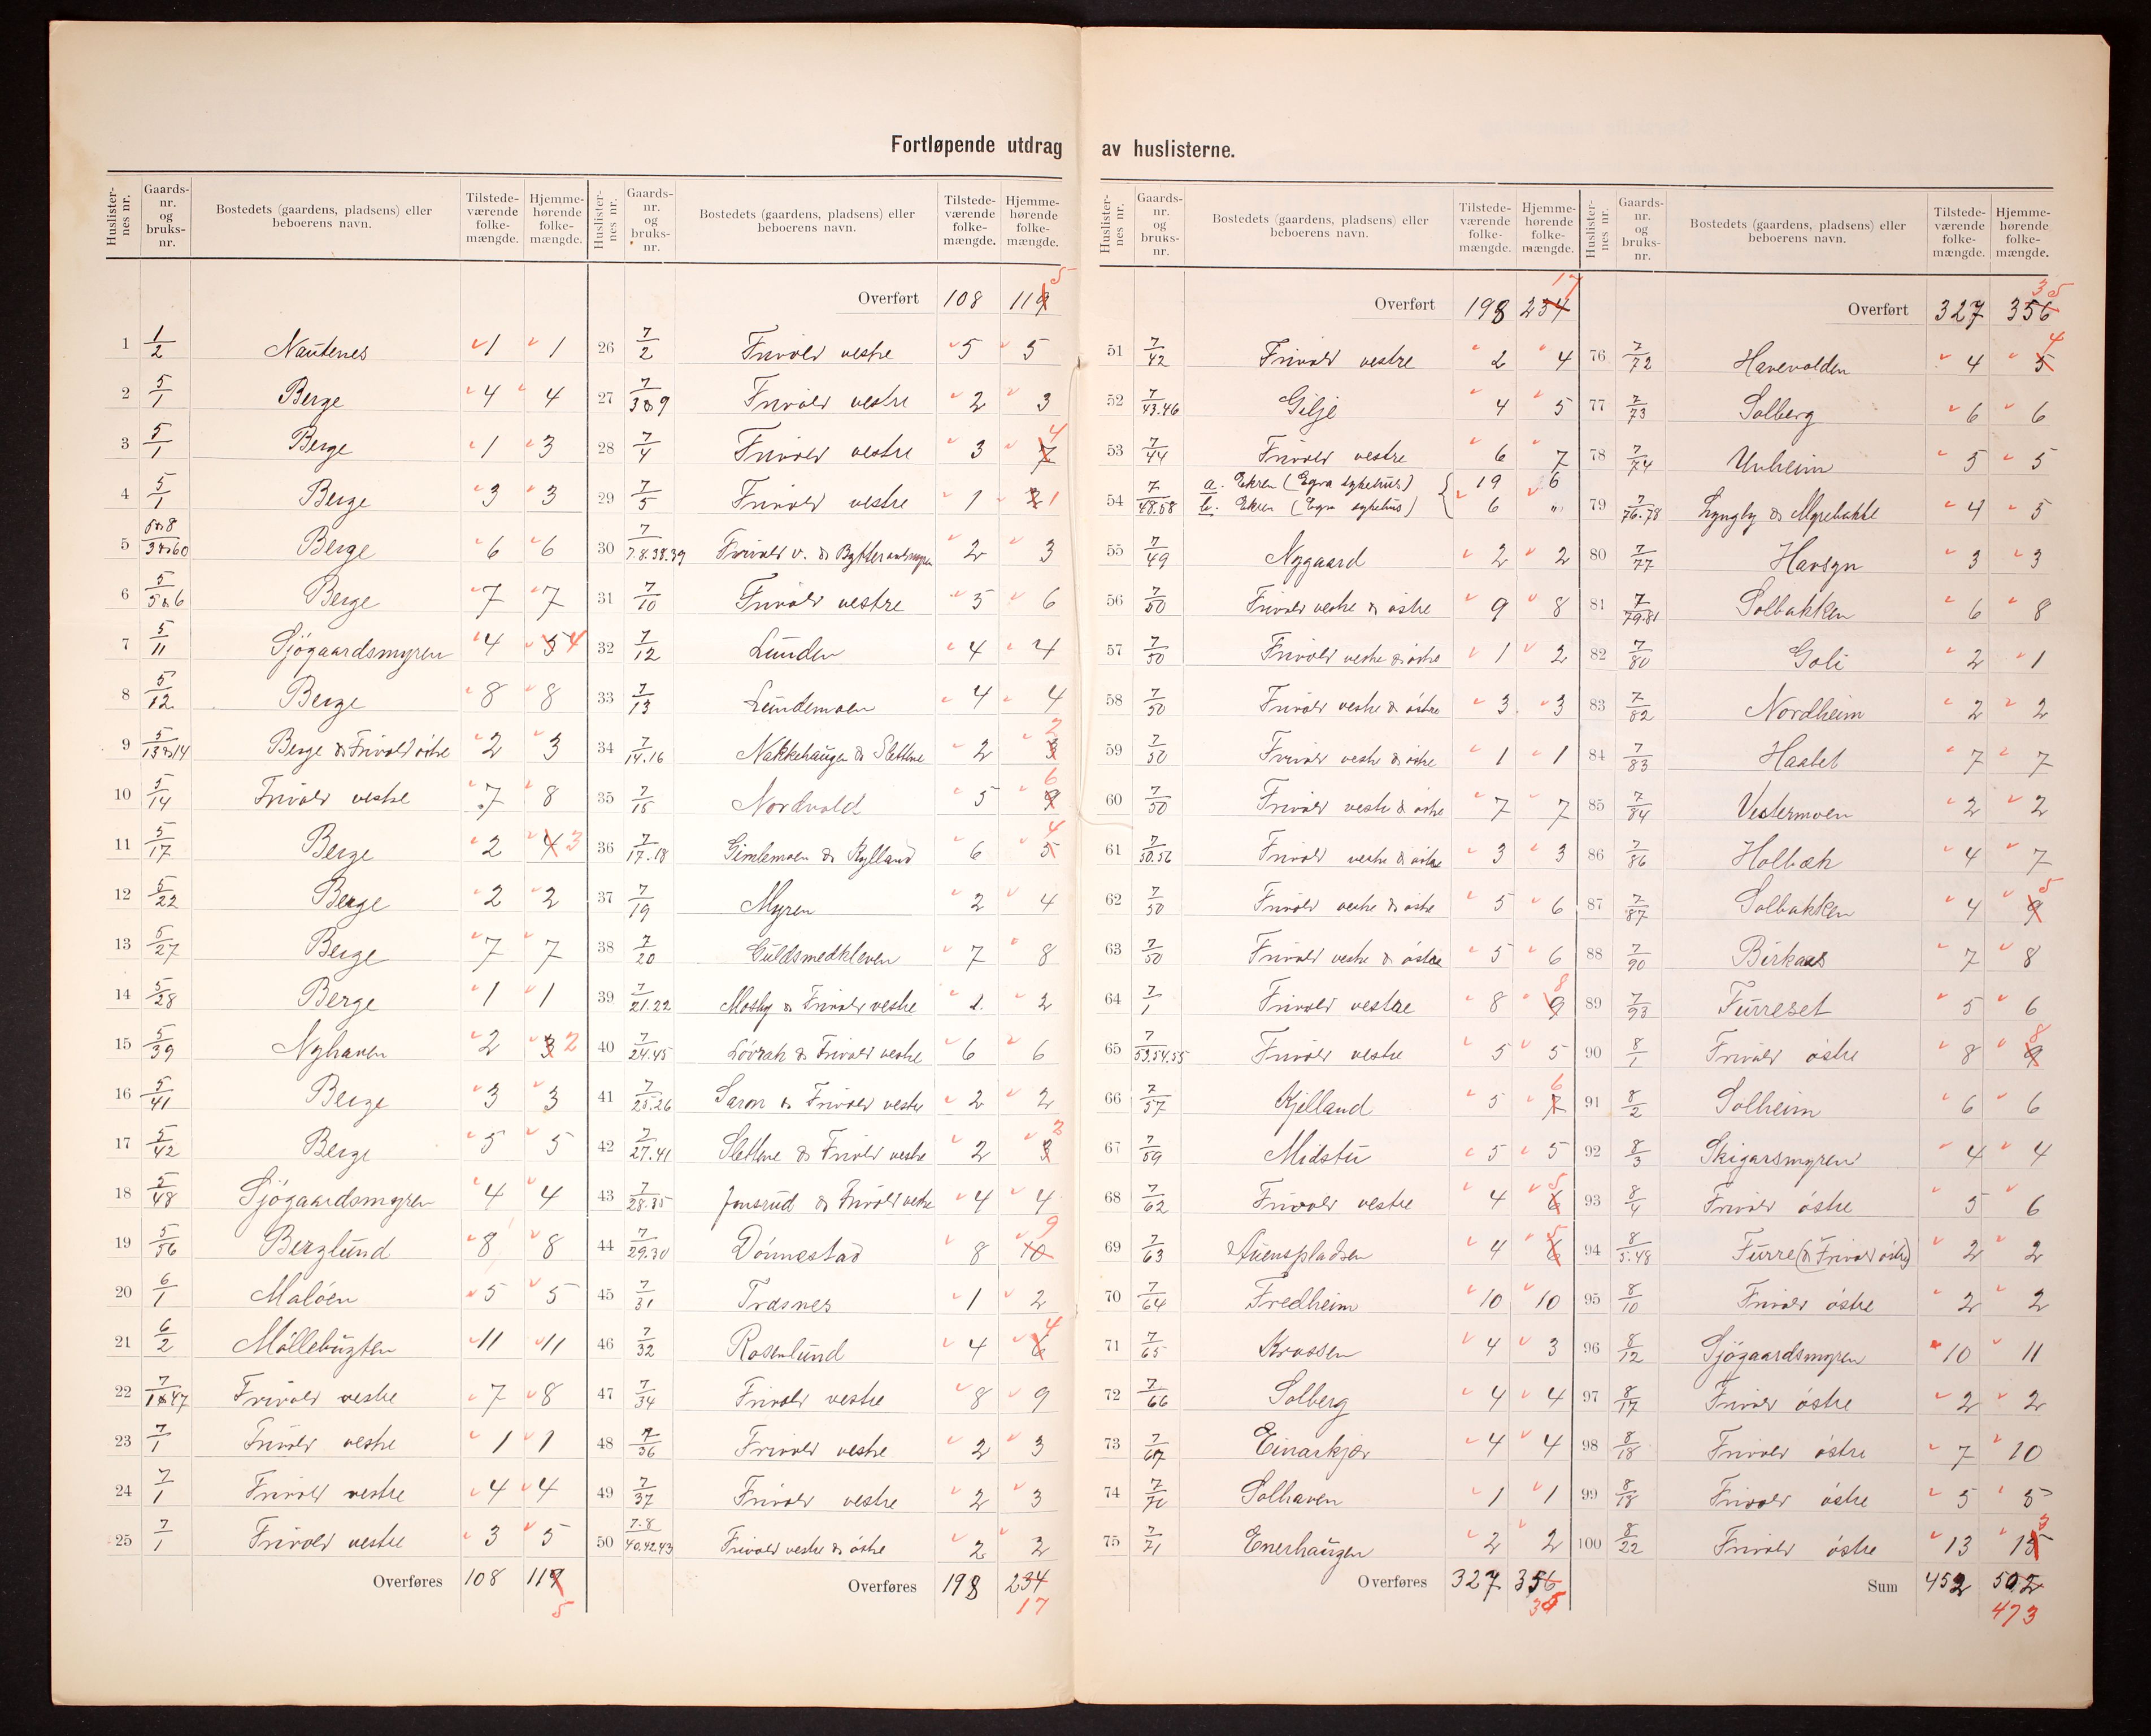 Fortløpende utdrag av huslisterne.
Huslisternes nr. Gaardsnr. og bruksnr. Bostedets (gaardens, pladsens) eller beboerens navn. Tilstedeværende folkemængde. Hjemmehørende folkemængde.
1 1/2 Nautenes 1 1
2 5/1 Berge 4 4
3 5/1 Berge 1 3
4 5/1 Berge 3 3
5 Berge 6 6
6 5/5 & 6 Berge 7 7
7 5/11 Sjøgaardsmyren 4 5 4
8 5/12 Berge 8 8
9 5/13 & 14 Berge & Frivold østre 2 3
10 5/14 Frivold vestre 7 8
11 5/17 Berge 2 4 3
12 5/22 Berge 2 2
13 5/27 Berge 7 7
14 5/28 Berge 1 1
15 5/39 Nyhaven 2 3 2
16 5/41 Berge 3 3
17 5/42 Berge 5 5
18 5/48 Sjøgaardsmyren 4 4
19 5/56 Berglund 8 8
20 6/1 Maløen 5 5
21 6/2 Møllebugten 11 11
22 7/1 & 47 Frivold vestre 7 8
23 7/1 Frivold vestre 1 1
24 7/1 Frivold vestre 4 4
25 7/1 Frivold vestre 3 5
Overføres 108 119
5
Huslisternes nr. Gaardsnr. og bruksnr. Bostedets (gaardens, pladsens) eller beboerens navn. Tilstedeværende folkemængde. Hjemmehørende folkemængde.
Overført 108 119 5
26 7/2 Frivold vestre 5 5
27 7/3 & 9 Frivold vestre 2 3
28 7/4 Frivold vestre 3 7 4
29 7/5 Frivold vestre 1 2 1
30 7/7.8.38.39 Frivold v. & 2 3
31 7/10 Frivold vestre 5 6
32 7/12 Lunden 4 4
33 7/13 Lundemoen 4 4
34 7/14.16 Nakkehaugen & Slettene 2 3 2
35 7/15 Nordvold 5 9 6
36 7/17.18 Gimlemoen & Rylland 6 5 4
37 7/19 Myren 2 4
38 7/20 Guldsmedkleven 7 8
39 7/21.22 Mosby & Frivold vestre 2 2
40 7/24.45 Løvrak & Frivold vestre 6 6
41 7/25.26 Saron & Frivold vestre 2 2
42 7/27.41 Slettene & Frivold vestre 2 3 2
43 7/28.35 Jonsrud & Frivold vestre 4 4
44 7/29.30 Dønnestad 8 10 9
45 7/31 Trosnes 1 2
46 7/32 Rosenlund 4 6 4
47 7/34 Frivold vestre 8 9
48 7/36 Frivold vestre 2 3
49 7/37 Frivold vestre 2 3
50 7.8/40.42.43 Frivold vestre & østre 2 2
Overføres 198 234
17
Huslisternes nr. Gaardsnr. og bruksnr. Bostedets (gaardens, pladsens) eller beboerens navn. Tilstedeværende folkemængde. Hjemmehørende folkemængde.
Overført 198 234 17
51 7/42 Frivold vestre 2 4
52 7/43.46 Gilje 4 5
53 7/44 Frivold vestre 6 7
54 7/48.58 a. Ekren (Egra sykehus) 19 6
b. Ekren (Egra sykehus) 6 "
55 7/49 Nygaard 2 2
56 7/50 Frivold vestre & østre 9 8
57 7/50 Frivold vestre & østre 1 2
58 7/50 Frivold vestre & østre 3 3
59 7/50 Frivold vestre & østre 1 1
60 7/50 Frivold vestre & østre 7 7
61 7/50.56 Frivold vestre & østre 3 3
62 7/50 Frivold vestre & østre 5 6
63 7/50 Frivold vestre & østre 5 6
64 7/1 Frivold vestre 8 9 8
65 7/53.54.55 Frivold vestre 5 5
66 7/57 Kjelland 5 7 6
67 7/59 Midstu 5 5
68 7/62 Frivold vestre 4 6 5
69 7/63 4 6 5
70 7/64 Fredheim 10 10
71 7/65 Krossen 4 3
72 7/66 Solberg 4 4
73 7/67 Einarkjær 4 4
74 7/70 Solhaven 1 1
75 7/71 Enerhaugen 2 2
Overføres 327 356
35
Huslisternes nr. Gaardsnr. og bruksnr. Bostedets (gaardens, pladsens) eller beboerens navn. Tilstedeværende folkemængde. Hjemmehørende folkemængde.
Overført 327 356 35
76 7/72 Havevolden 4 5 4
77 7/73 Solberg 6 6
78 7/74 Unheim 5 5
79 7/76.78 Lyngby & Myrebakke 4 5
80 7/77 Havsyn 3 3
81 7/79.81 Solbakken 6 8
82 7/80 Goli 2 1
83 7/82 Nordheim 2 2
84 7/83 Haabet 7 7
85 7/84 Vestermoen 2 2
86 7/86 Holbæk 4 7
87 7/87 Solbakken 4 9 5
88 7/90 Birkaas 7 8
89 7/93 Furreset 5 6
90 8/1 Frivold østre 8 9 8
91 8/2 Solheim 6 6
92 8/3 Skigarsmyren 4 4
93 8/4 Frivold østre 5 6
94 8/5.48 Furre (& Frivold østre) 2 2
95 8/10 Frivold østre 2 2
96 8/12 Sjøgaardsmyren 10 11
97 8/17 Frivold østre 2 2
98 8/18 Frivold østre 7 10
99 8/18 Frivold østre 5 5
100 8/22 Frivold østre 13 15 3
Sum 452 502
473